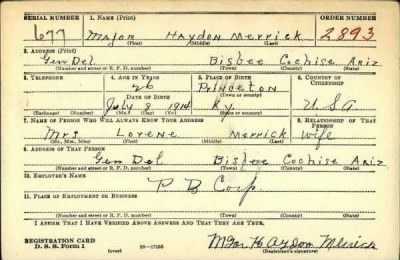 SERIAL NUMBER 1. NAME (Print) ORDER NUMBER
677 Major Haydon Merrick 2893
(First) (Middle) (Last)
2. ADDRESS (Print)
Gen Del Bisbee Cochise Ariz
(Number and street or R. F. D. number) (Town) (County) (State)
3. TELEPHONE 4. AGE IN YEARS 5. PLACE OF BIRTH 6. COUNTRY OF CITIZENSHIP
26 Princeton
DATE OF BIRTH (Town or county)
July 8 1914 Ky. USA
(Exchange) (Number) (Mo.) (Day) (Yr.) (State or country)
7. NAME OF PERSON WHO WILL ALWAYS KNOW YOUR ADDRESS 8. RELATIONSHIP OF THAT PERSON
Mrs Lorene Merrick wife
(Mr., Mrs., Miss) (First) (Middle) (Last)
9. ADDRESS OF THAT PERSON
Gen Del Bisbee Cochise Ariz
(Number and street or R. F. D. number) (Town) (County) (State)
10. EMPLOYER'S NAME
P D Corp
11. PLACE OF EMPLOYMENT OR BUSINESS
(Number and street or R. F. D. number) (Town) (County) (State)
I AFFIRM THAT I HAVE VERIFIED ABOVE ANSWERS AND THAT THEY ARE TRUE.
REGISTRATION CARD
D. S. S. Form 1 (over) 16—17105 Major Haydon Merrick
(Registrant's signature)